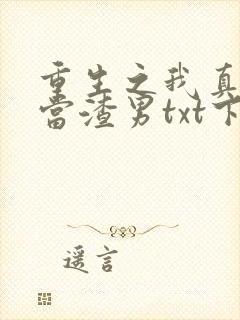 重生之我真
当渣男txt下
遥言